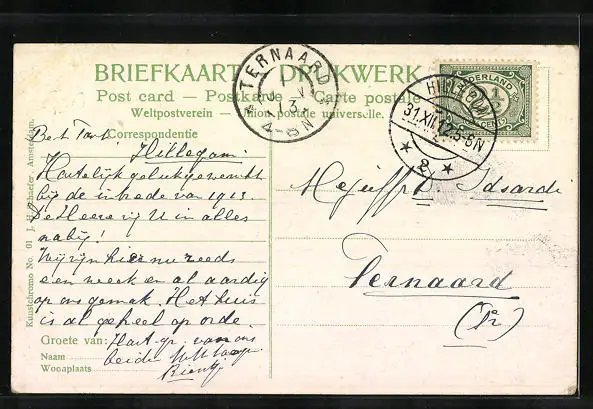 BRIEFKAART — DRUKWERK
Post card — Postkarte — Carte postale
Weltpostverein — Union postale universelle.
TERNAARD
4-8N
HILLEGOM
31.XII.12.5-8N
2
NEDERLAND
2½
Kunstchromo No. 01 J. H. Schaefer, Amsterdam.
Correspondentie
Best Tante, Hillegom
Hartelijk gelukgewenscht
bij de intrede van 1913.
De Heere zij U in alles
nabij!
Wij zijn hier nu reeds
een week en al aardig
op ons gemak. Het huis
is al geheel op orde.
Groete van: Hart. gr. van ons
Naam beide
Woonplaats Rientje
Mejuffr Idsardi
Ternaard
(Fr)